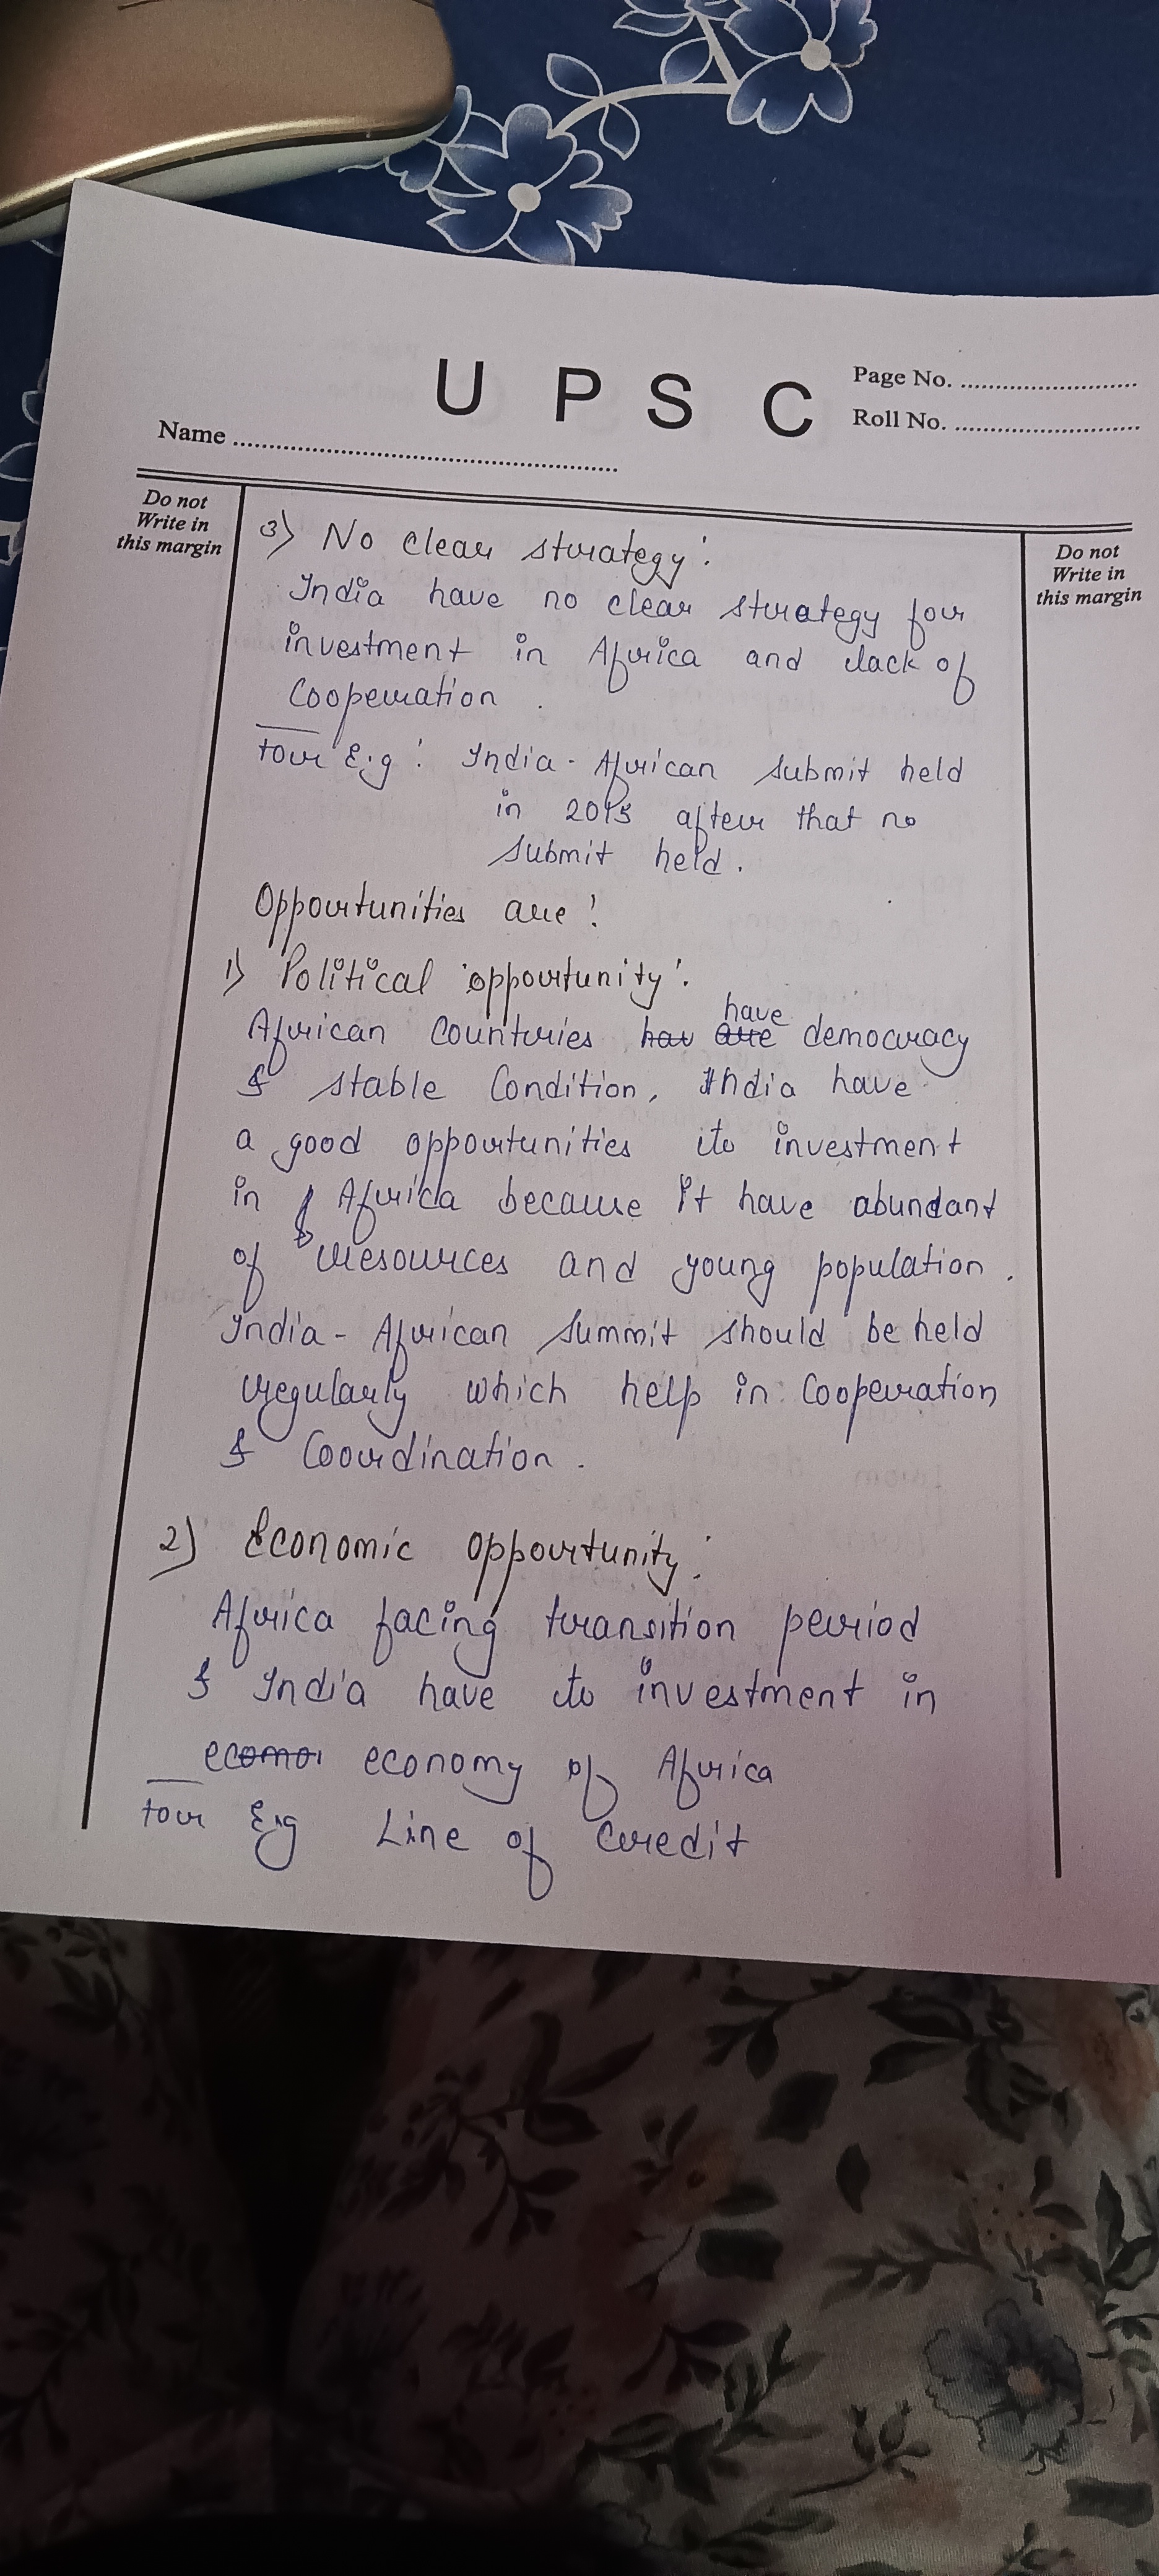 U P S C
Page No. ..............................
Roll No. ..............................
Name ............................................................
Do not
Write in
this margin
Do not
Write in
this margin
3) No clear strategy:
India have no clear strategy for
investment in Africa and lack of
Cooperation.
For E.g: India - African submit held
in 2015 after that no
submit held.
Opportunities are:
1) Political opportunity:
African Countries have democracy
& stable Condition, India have
a good opportunities to investment
in Africa because It have abundant
of resources and young population.
India - African summit should be held
regularly which help in Cooperation
& Coordination.
2) Economic opportunity:
Africa facing transition period
& India have to investment in
economy of Africa
For Eg Line of Credit